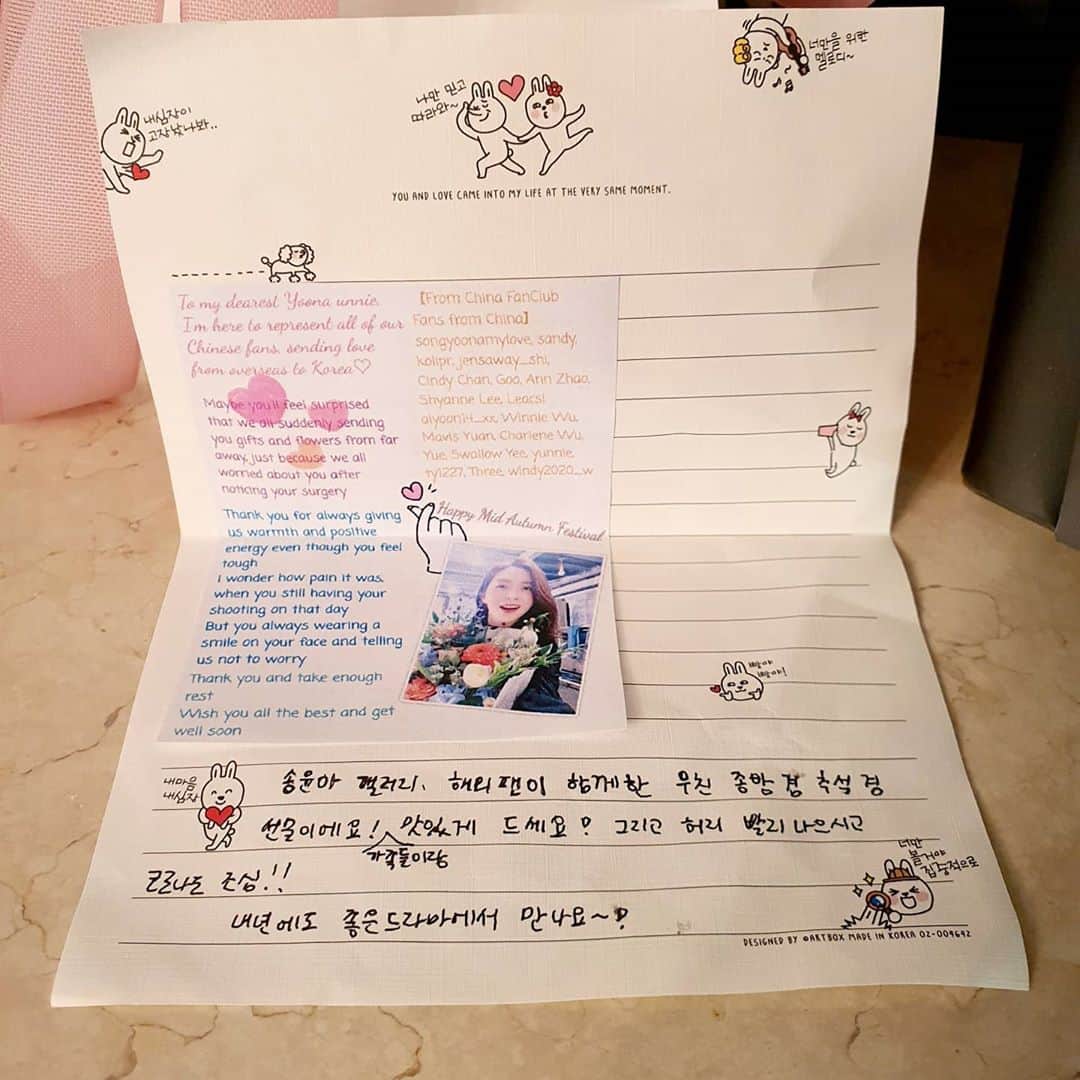 너만을 위한
멜로디~
나만 믿고
따라와~
내심장이
고장났나봐..
YOU AND LOVE CAME INTO MY LIFE AT THE VERY SAME MOMENT.
To my dearest Yoona unnie,
I'm here to represent all of our
Chinese fans, sending love
from overseas to Korea♡
Maybe you'll feel surprised
that we all suddenly sending
you gifts and flowers from far
away, just because we all
worried about you after
noticing your surgery
Thank you for always giving
us warmth and positive
energy even though you feel
tough
I wonder how pain it was,
when you still having your
shooting on that day
But you always wearing a
smile on your face and telling
us not to worry
Thank you and take enough
rest
Wish you all the best and get
well soon
[From China FanClub
Fans from China]
songyoonamylove, sandy,
kolipr, jensaway_shi,
Cindy Chan, Gao, Ann Zhao,
Shyanne Lee, Leacsl
aiyoon14_xx, Winnie Wu,
Mavis Yuan, Charlene Wu,
Yue, Swallow Yee, yunnie,
ty1227, Three, windy2020_w
Happy Mid Autumn Festival
빵야
빵야!
내마음
내심장
송윤아 갤러리, 해외팬이 함께한 우친 종방겸 추석 겸
선물이에요! 맛있게 드세요? 그리고 허리 빨리 나으시고
가족들이랑
코로나도 조심!!
내년에도 좋은드라마에서 만나요~?
너만
볼거야
집중적으로
DESIGNED BY ©ARTBOX MADE IN KOREA 02-009692